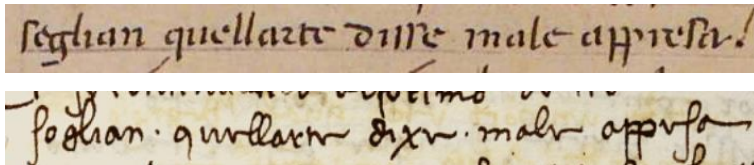 seglian quellarte disse male appresa.
soglian · quellarte dixe · male appresa